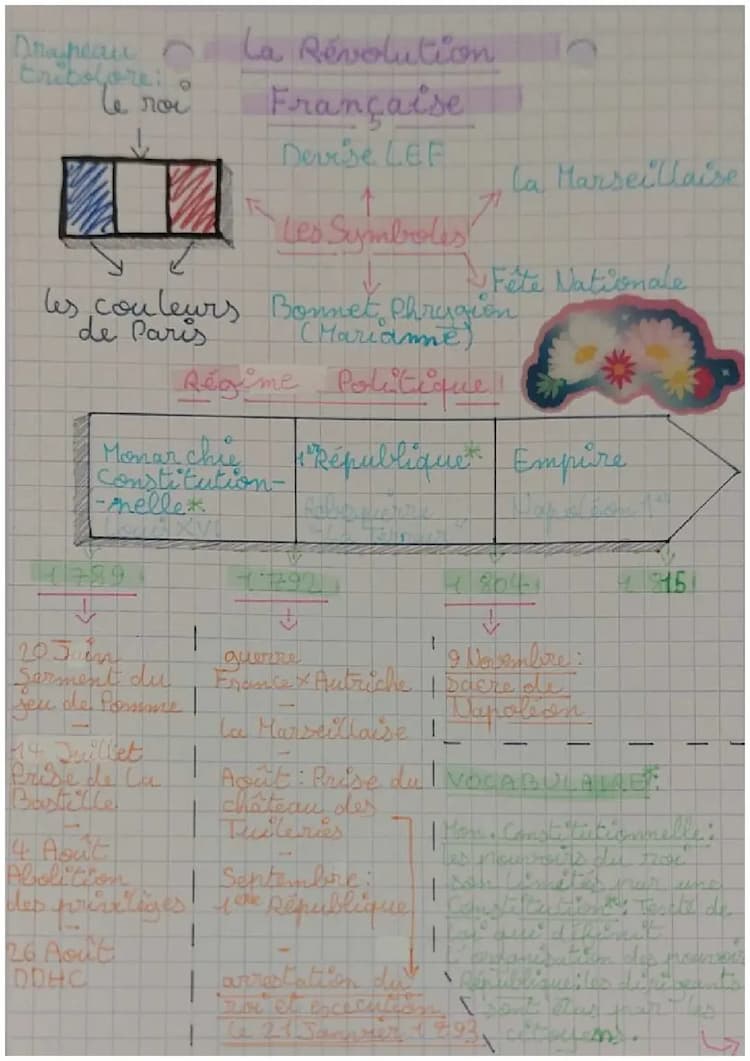 Drapeau
tribolore:
le roi
La Révolution
Française
Devise LEF
La Marseillaise
Les Symboles
Fête Nationale
les couleurs
de Paris
Bonnet Phrygien
(Marianne)
Régime Politique
Monarchie
Constitution-
-nelle*
Louis XVI
1ère République*
Empire
Napoléon 1er
1789
1792
1804
1815
20 Juin
Serment du
jeu de Pomme
-
14 Juillet
Prise de la
Bastille
-
4 Août
Abolition
des privilèges
-
26 Août
DDHC
guerre
France x Autriche
-
La Marseillaise
-
Août : Prise du
château des
Tuileries
-
Septembre:
1ère République
-
arrestation du
roi et execution
le 21 Janvier 1893
9 Novembre:
Sacre de
Napoléon
VOCABULAIRE*:
Mon. Constitutionnelle:
les pouvoirs du roi
son limités par une
Constitution*: Texte de
loi qui définit
l'organisation des pouvoirs
République: les dirigeants
sont élus par les
citoyens.